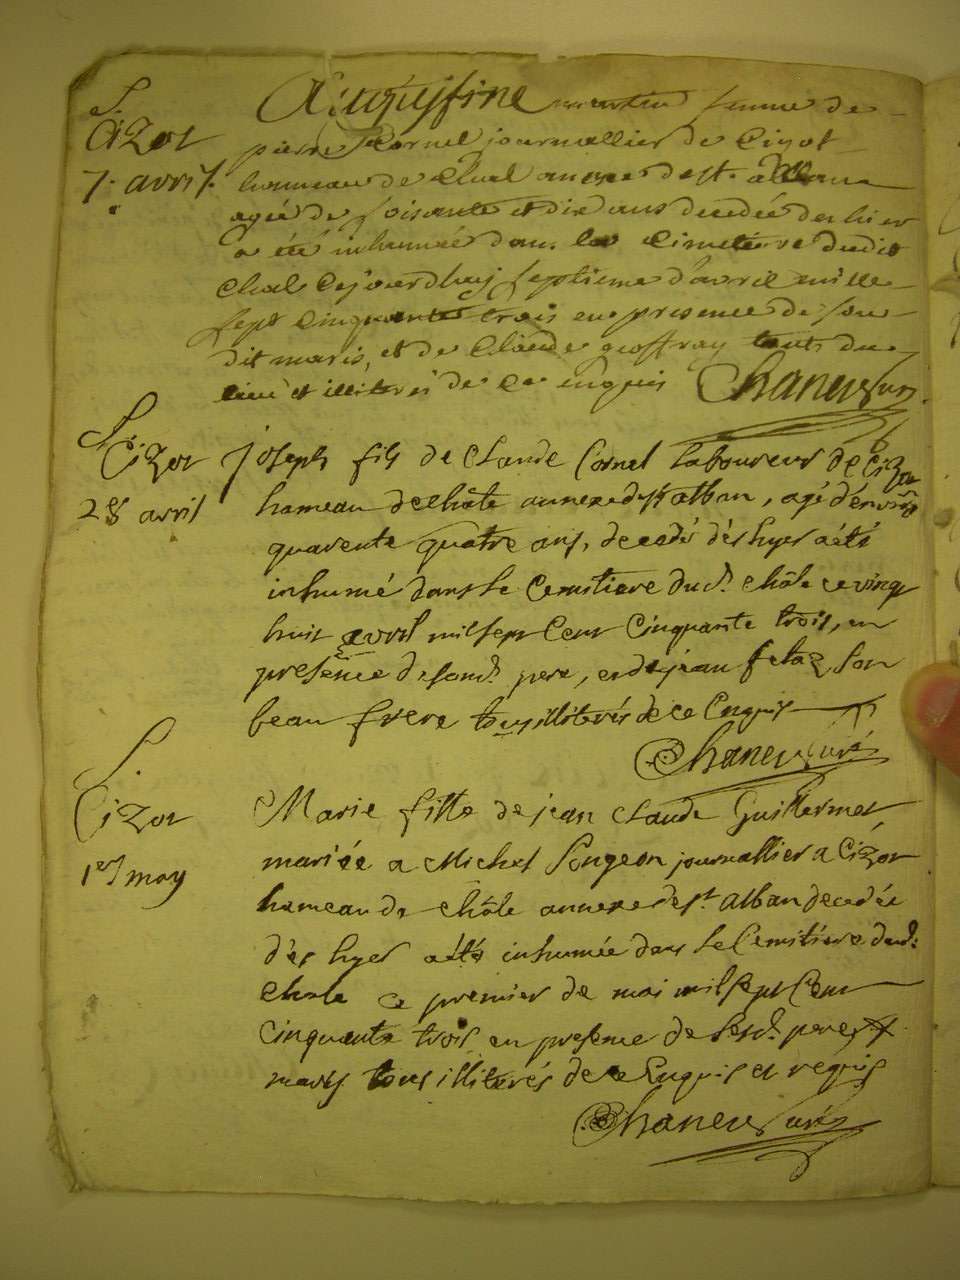 S.
Cizot
7. avril
Augustine martin femme de
pierre Cornel journallier de Cizot
hameau de Chal annexe de st. alban
agée de soisante et dix ans decedée des hier
a été inhumée dans le cimetierre dudit
Chal cejourdhuy septieme d'avril mille
sept cinquante trois en presence de sou
dit maris, et de Claude geoffray touts du
lieu et illiterés de ce enquis Chanew curé
S.
Cizot
28 avril
joseph fils de Claude Cornel Laboureur de Cizot
hameau de Châle annexe de st alban, agé d'environ
quarente quatre ans, decedé dés hyer a été
inhumé dans le Cemitiere dud. Châle ce vingt
huit avril mil sept Cent Cinquante trois, en
presence de sond. pere, et de jean Fetaz son
beau frere tous illiterés de ce Enquis
Chanew curé
S.
Cizot
1er may
Marie fille de jean Claude Guillermet
mariée a Michel Songeon journallier a Cizot
hameau de Châle annexe de st. alban decedée
dés hyer a étée inhumée dans le Cemitiere dud.
Chale ce premier de mai mil sept Cent
Cinquante trois en presence de sesd. pere et
marys tous illiterés de ce Enquis et requis
Chanew curé